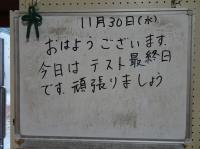 11月30日(水)
おはようございます.
今日は テスト最終日
です. 頑張りましょう